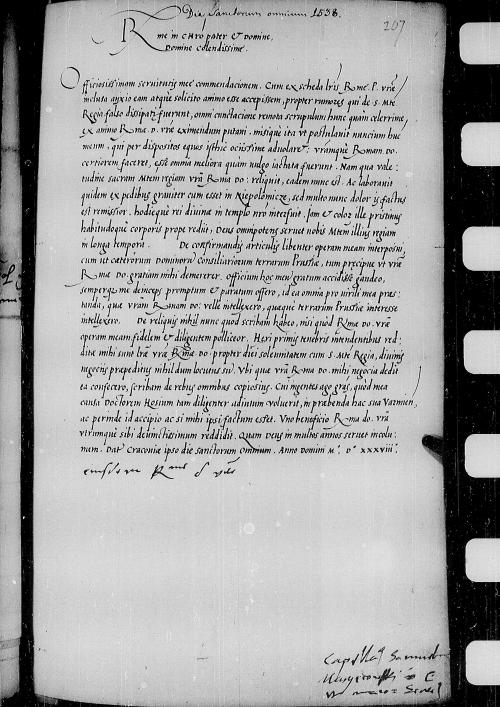 Die Sanctorum omnium 1538.
207
Rme in Chro pater et Domine,
Domine colendissime.
Officiosissimam servitutis meę commendationem. Cum ex scheda lris Rme P. vrę
inclusa anxio eam atque solicito animo esse accepissem, propter rumores qui de S. Mte
Regia falso dissipati fuerunt, omni cunctatione remota scrupulum hunc quam celerrime,
ex animo Rma. D. vrę eximendum putavi. misique ita ut postulavit nuncium huc
meum, qui per dispositos equos isthic ocissime advolaret: vramque Rmam Do.
certiorem faceret, esse omnia meliora quam vulgo iactata fuerunt. Nam qua vale:
tudine sacram Mtem regiam vra Rma Do: reliquit, eadem nunc est. Ac laboravit
quidem ex pedibus graviter cum esset in Niepolomicze, sed multo nunc dolor is factus
est remissior. hodieque rei divinę in templo nro interfuit. Iam et color ille pristinus
habitudoque corporis prope rediit. Deus omnipotens servet nobis Mtem illius regiam
in longa tempora. De confirmandis articulis libenter operam meam interposui,
cum ut cęterorum Dominorum Consiliariorum terrarum Prussię, tum pręcipue ut vrę
Rmę Do. gratiam mihi demererer. officium hoc meum gratum accidisse gaudeo,
semperque me deinceps promptum et paratum offero, id ea omnia pro virili mea pręs:
tanda, quę vram Rmam Do: velle intellexero, quaque terrarum Prussię interesse
intellexero. De reliquis nihil nunc quod scribam habeo, nisi quod Rmę Do. vrę
operam meam fidelem et diligentem polliceor. Heri primis tenebris intendentibus red:
ditę mihi sunt lrę vrę Rmę Do. propter diei solemnitatem cum S. Mte Regia, divinis
negociis prępeditus nihil dum locutus sum. Ubi quę vra Rma Do. mihi negocia dedit
ea confecero, scribam de rebus omnibus copiosius. Cui ingentes ago gras, quod mea
causa Doctorem Hosium tam diligenter adiutum voluerit, in prębenda hac sua Varmien,
ac perinde id accipio ac si mihi ipsi factum esset. Uno beneficio Rma do. vra
utrumque sibi devinctissimum reddidit. Quam Deus in multos annos servet incolu:
mem. Dat Cracovię ipso die sanctorum omnium. Anno Domini M°. D° XXXVIII°.
eiusdem Rme D v